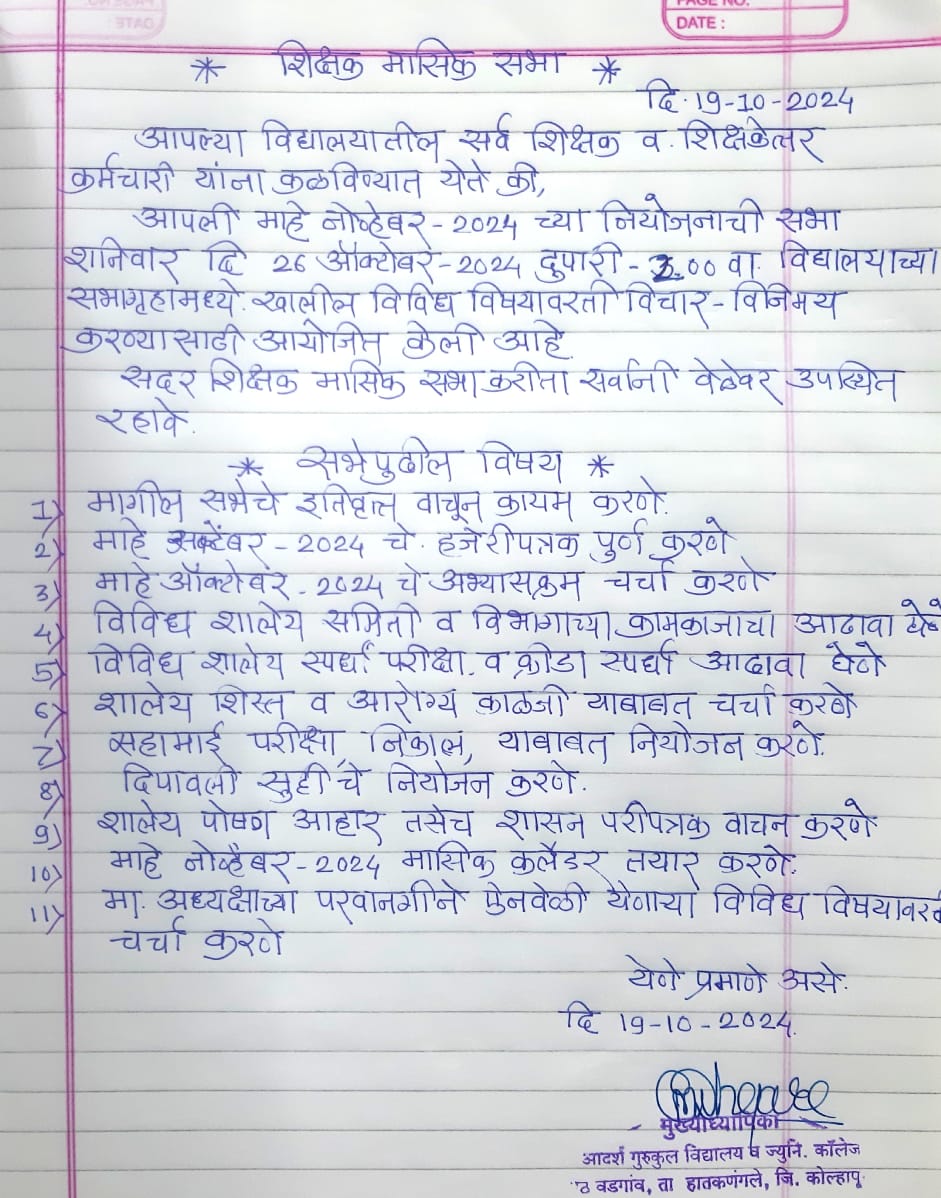 PAGE NO.
DATE :
* शिक्षक मासिक सभा *
दि. 19-10-2024
आपल्या विद्यालयातील सर्व शिक्षक व शिक्षकेत्तर
कर्मचारी यांना कळविण्यात येते की,
आपली माहे नोव्हेंबर - 2024 च्या नियोजनाची सभा
शनिवार दि 26 ऑक्टोबर - 2024 दुपारी - 3.00 वा. विद्यालयाच्या
सभागृहामध्ये खालील विविध विषयावरती विचार - विनिमय
करण्यासाठी आयोजित केली आहे.
सदर शिक्षक मासिक सभा करीता सर्वांनी वेळेवर उपस्थित
रहावे.
* सभेपुढील विषय *
1) मागील सभेचे इतिवृत्त वाचून कायम करणे.
2) माहे सप्टेंबर - 2024 चे. हजेरीपत्रक पुर्ण करणे
3) माहे ऑक्टोबर - 2024 चे अभ्यासक्रम चर्चा करणे
4) विविध शालेय समिती व विभागाच्या कामकाजाचा आढावा घेणे
5) विविध शालेय स्पर्धा परीक्षा व क्रीडा स्पर्धा आढावा घेणे
6) शालेय शिस्त व आरोग्य काळजी याबाबत चर्चा करणे
7) सहामाई परीक्षा, निकाल, याबाबत नियोजन करणे.
8) दिपावली सुट्टीचे नियोजन करणे.
9) शालेय पोषण आहार तसेच शासन परीपत्रक वाचन करणे
10) माहे नोव्हेंबर - 2024 मासिक कलेंडर तयार करणे.
11) मा. अध्यक्षाच्या परवानगीने ऐनवेळी येणाऱ्या विविध विषयावरती
चर्चा करणे
येणे प्रमाणे असे.
दि 19-10-2024.
मुख्याध्यापिका
आदर्श गुरुकुल विद्यालय व ज्युनि. कॉलेज
वडगांव, ता हातकणंगले, जि. कोल्हापू